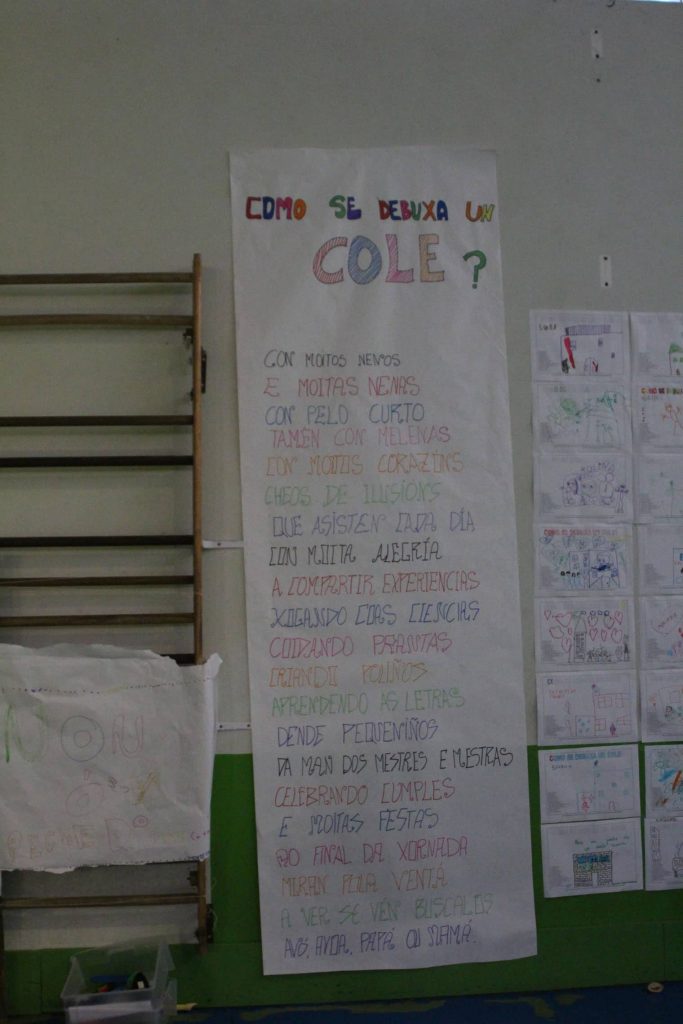 COMO SE DEBUXA UN
COLE ?
CON MOITOS NENOS
E MOITAS NENAS
CON PELO CURTO
TAMÉN CON MELENAS
CON MOITOS CORAZÓNS
CHEOS DE ILUSIÓNS
QUE ASISTEN CADA DÍA
CON MOITA ALEGRÍA
A COMPARTIR EXPERIENCIAS
XOGANDO COAS CIENCIAS
COIDANDO PRANTAS
CRIANDO POLIÑOS
APRENDENDO AS LETRAS
DENDE PEQUENIÑOS
DA MAN DOS MESTRES E MESTRAS
CELEBRANDO CUMPLES
E MOITAS FESTAS
AO FINAL DA XORNADA
MIRAN POLA VENTÁ
A VER SE VÉN BUSCALOS
AVÓ, AVOA, PAPÁ OU MAMÁ.
NON